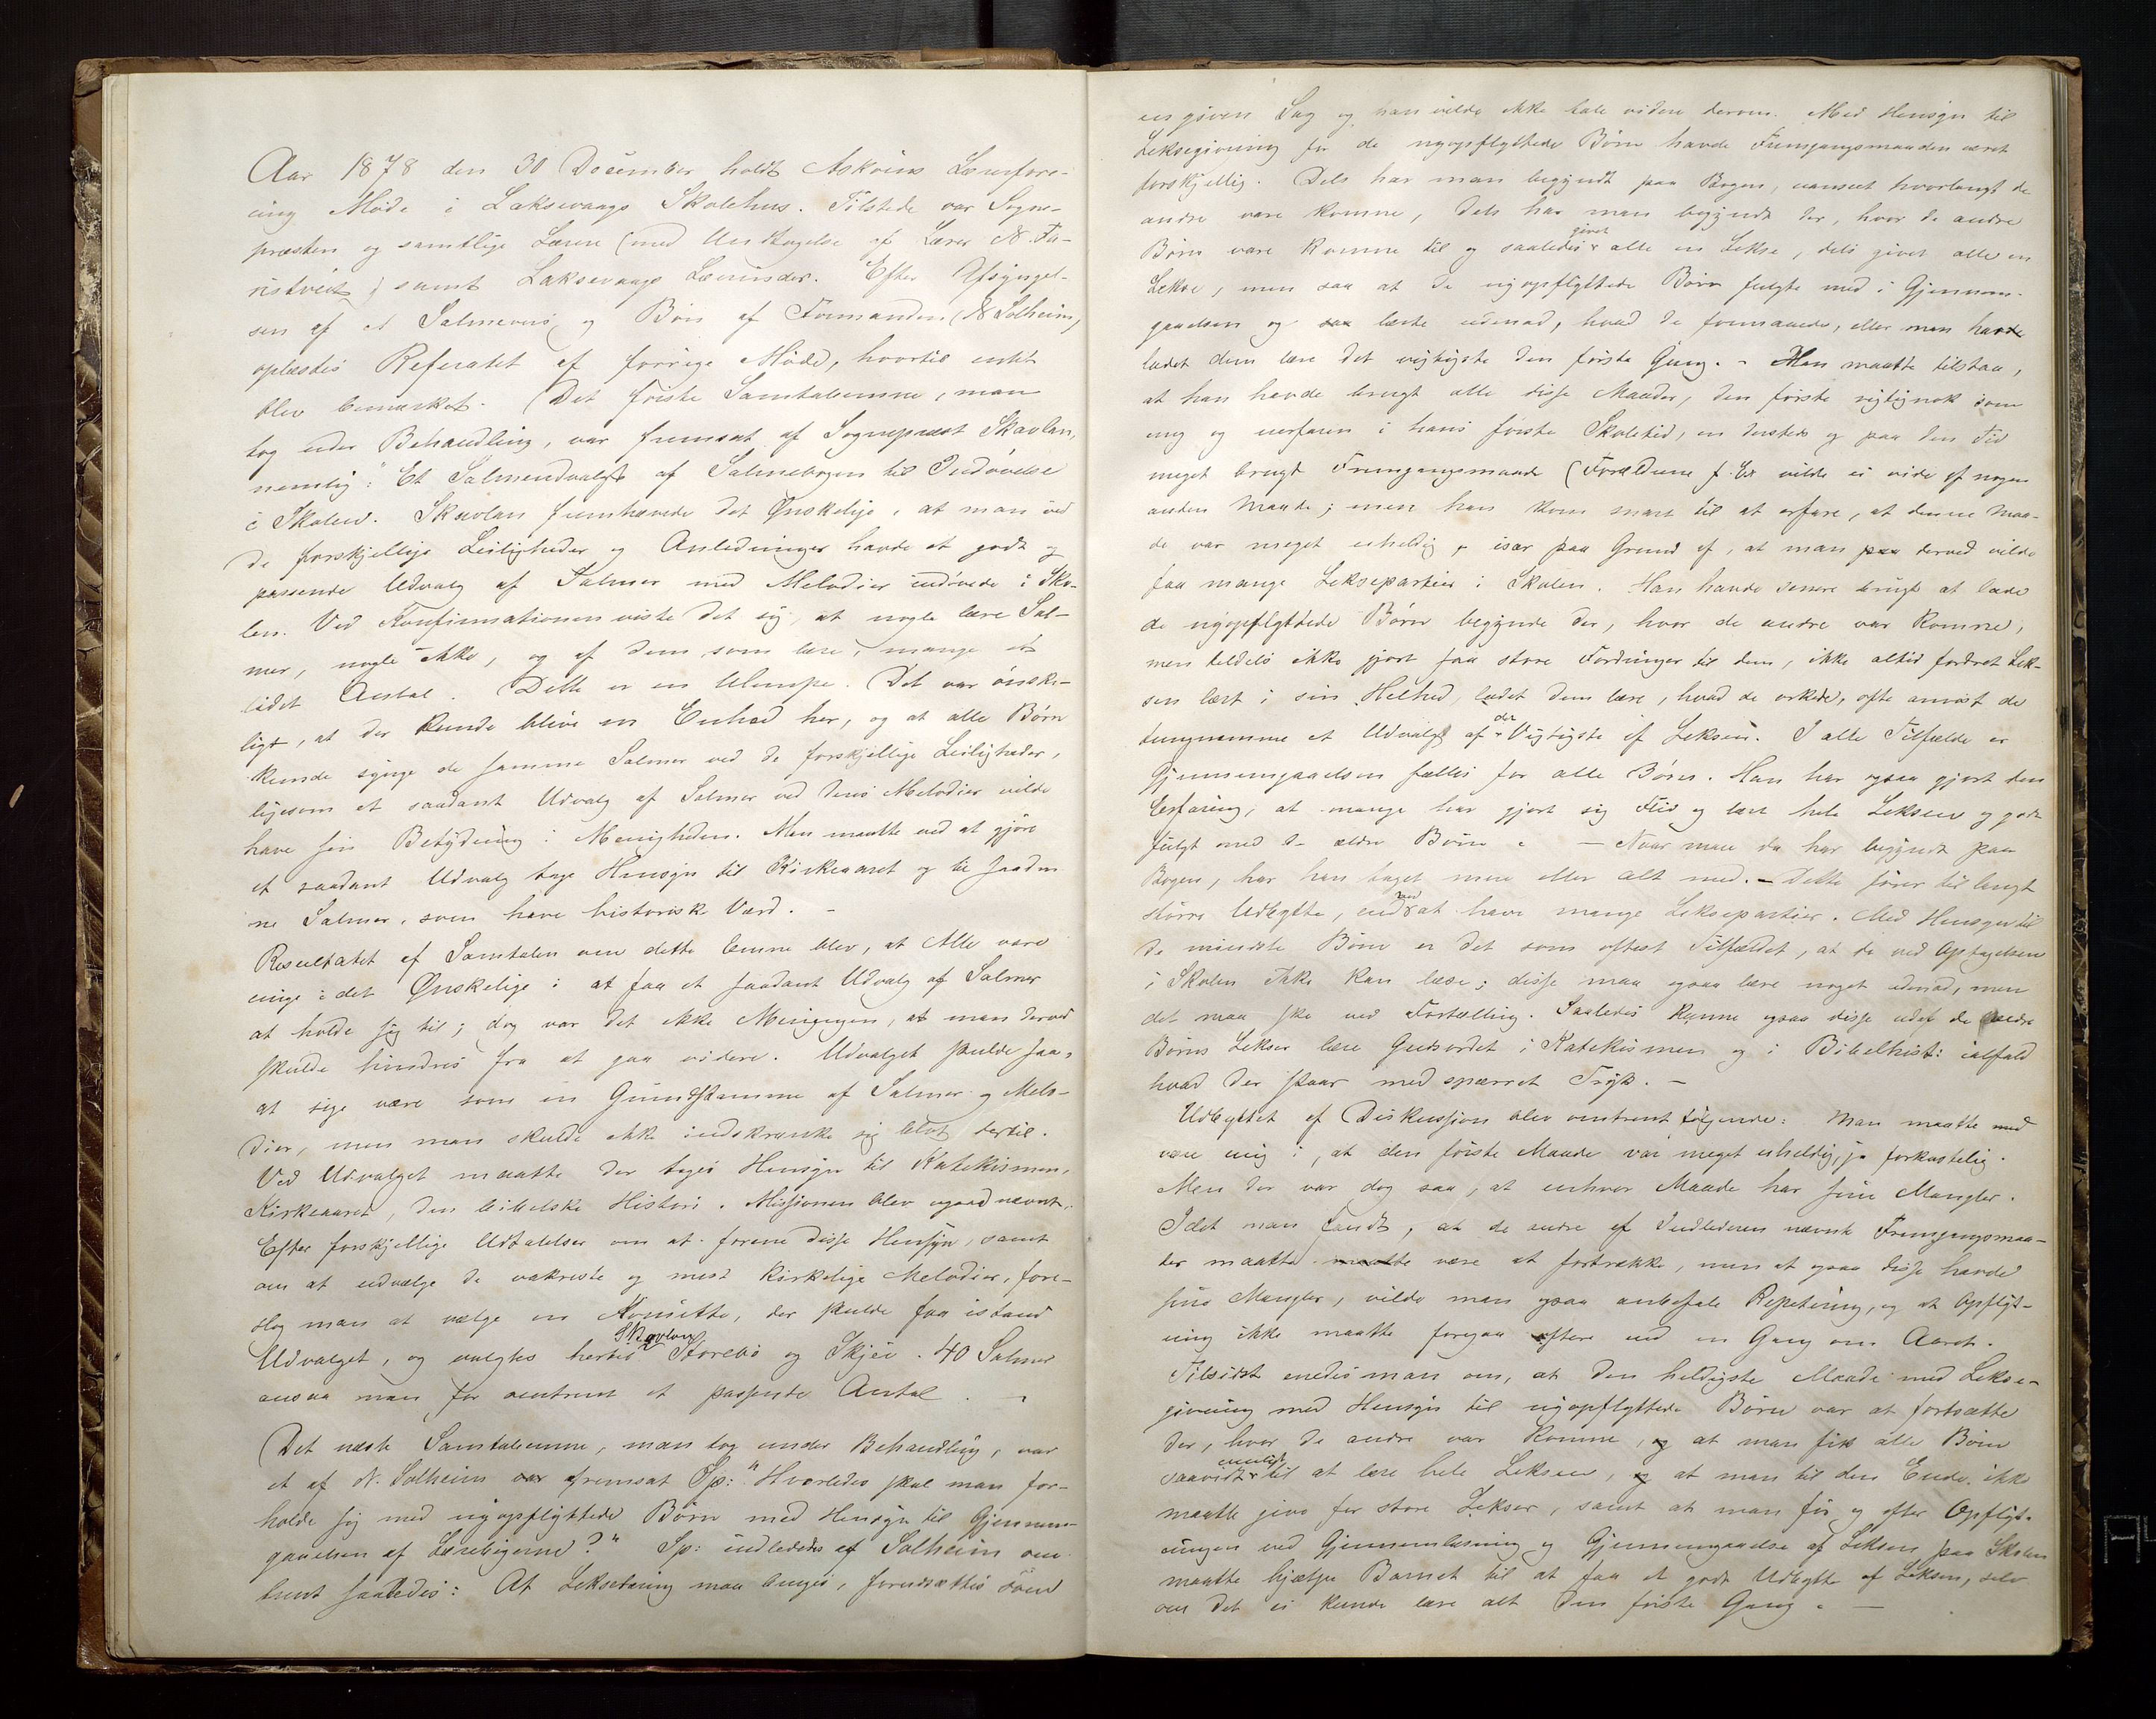 Aar 1878 den 30 December holdt Askøens Lærerfore-
ning Møde i Laksevaags Skolehus. Tilstede var Sogne-
præsten og samtlige Lærere (med Undtagelse af Lærer N. Fa-
ristveit) samt Laksevaags Lærerinder. Efter Afsyngel-
sen af et Salmevers og Bøn af Formanden (N Solheim)
oplæstes Referatet af forrige Møde, hvortil intet
blev bemærket. Det første Samtaleemne, man
tog under Behandling, var fremsat af Sognepræst Skavlan,
nemlig: "Et Salmeudvalg af Salmebogen til Indøvelse
i Skolen. Skavlan fremhævede det Ønskelige, at man ved
de forskjellige Leiligheder og Anledninger havde et godt og
passende Udvalg af Salmer med Melodier indøvede i Sko-
len. Ved Konfirmationen viste det sig, at nogle lære Sal-
mer, nogle ikke, og af dem som lære, mange et
lidet Antal. Dette er en Ulempe. Det var ønske-
ligt, at der kunde blive en Enhed her, og at alle Børn
kunde synge de samme Salmer ved de forskjellige Leiligheder,
ligesom et saadant Udvalg af Salmer ved deres Melodier vilde
have sin Betydning i Menigheden. Man maatte ved at gjøre
et saadant Udvalg tage Hensyn til Kirkeaaret og til saadan
ne Salmer, som have historisk Værd. -
Resultatet af Samtalen om dette Emne blev, at Alle vare
enige i det Ønskelige i at faa et saadant Udvalg af Salmer
at holde sig til; dog var det ikke Meningen, at man derved
skulde hindres fra at gaa videre. Udvalget skulde saa
at sige være som en Grundstamme af Salmer og Melo-
dier, men man skulde ikke indskrænke sig blot dertil.
Ved Udvalget maatte der tages Hensyn til Katekismen,
Kirkeaaret, den bibelske Historie. Missionen blev ogsaa nævnt.
Efter forskjellige Udtalelser om at forene disse Hensyn, samt
om at udvælge de vakreste og mest kirkelige Melodier, fore-
slog man at vælge en Komitte, der skulde faa istand
Udvalget, og valgtes hertil Skavlan Storebø og Skjei. 40 Salmer
ansaa man for omtrent et passende Antal. -
Det næste Samtaleemne, man tog under Behandling, var
et af N. Solheim var fremsat Sp: "Hvorledes skal man for-
holde sig med nyopflyttede Børn med Hensyn til Gjennem-
gaaelsen af Lærebøgerne?" Sp: indlededes af Solheim om-
trent saaledes: At Lekselæring maa bruges, forudsættes som
en given Sag og han vilde ikke tale videre derom. Med Hensyn til
Leksegivning for de nyopflyttede Børn havde Fremgangsmaaden været
forskjellig. Dels har man begyndt paa Bogen, uanseet hvorlangt de
andre vare komne, dels har man begyndt der, hvor de andre
Børn vare komne til og saaledes givet alle en Lekse, dels givet alle en
Lekse, men saa at de nyopflyttede Børn fulgte med i Gjennem-
gaaelsen og saa lærte udenad, hvad de formaaede, eller man havde
ladet dem lære det vigtigste den første Gang. - Han maatte tilstaa,
at han havde brugt alle disse Maader, den første rigtignok som
ung og uerfaren i hans første Skoletid, en dersteds og paa den Tid
meget brugt Fremgangsmaade (Forældrene f. Ex vilde ei vide af nogen
anden Maade; men han kom snart til at erfare, at denne Maa-
de var meget uheldig, især paa Grund af, at man paa derved vilde
faa mange Leksepartier i Skolen. Han havde senere brugt at lade
de nyopflyttede Børn begynde der, hvor de andre var komne,
men tildels ikke gjort saa store Fordringer til dem, ikke altid fordret Lek-
sen lært i sin Helhed, ladet dem lære, hvad de orkede, ofte anvist de
tungnemme et Udvalg af det Vigtigste af Leksen. I alle Tilfælde er
Gjennemgaaelsen fælles for alle Børn. Han har ogsaa gjort den
Erfaring, at mange har gjort sig Flid og lært hele Leksen og godt
fulgt med de ældre Børn. - Naar man da har begyndt paa
Bogen, har han taget mere eller alt med. - Dette fører til langt
større Udbytte, end ved at have mange Leksepartier. Med Hensyn til
de mindste Børn er det som oftest Tilfældet, at de ved Optagelsen
i Skolen ikke kan læse; disse maa ogsaa lære noget udenad, men
det maa ske ved Fortælling. Saaledes kunne ogsaa disse udaf de ældre
Børns Lekser lære Gudsordet i Katekismen og i Bibelhist: ialfald
hvad der staar med spærret Tryk. -
Udbyttet af Diskussjon blev omtrent følgende: Man maatte med
være enig i, at den første Maade var meget uheldig, ja forkastelig.
Men der var dog saa, at enhver Maade har sine Mangler.
Idet man fandt, at de andre af Indlederen nævnte Fremgangsmaa-
der maatte maatte være at foretrække, men at ogsaa disse havde
sine Mangler, vilde man ogsaa anbefale Repetering, og at Opflyt-
ning ikke maatte foregaa oftere end en Gang om Aaret.
Tilsidst enedes man om, at den heldigste Maade med Lekse-
givning med Hensyn til nyopflyttede Børn var at fortsætte
der, hvor de andre var komne, og at man fik alle Børn
saavidt muligt til at lære hele Leksen, og at man til den Ende ikke
maatte give for store Lekser, samt at man før og efter Opflyt-
ningen ved Gjennemlæsning og Gjennemgaaelse af Leksen paa Skolen
maatte hjælpe Barnet til at faa et godt Udbytte af Leksen, selv
om det ei kunde lære alt den første Gang. -